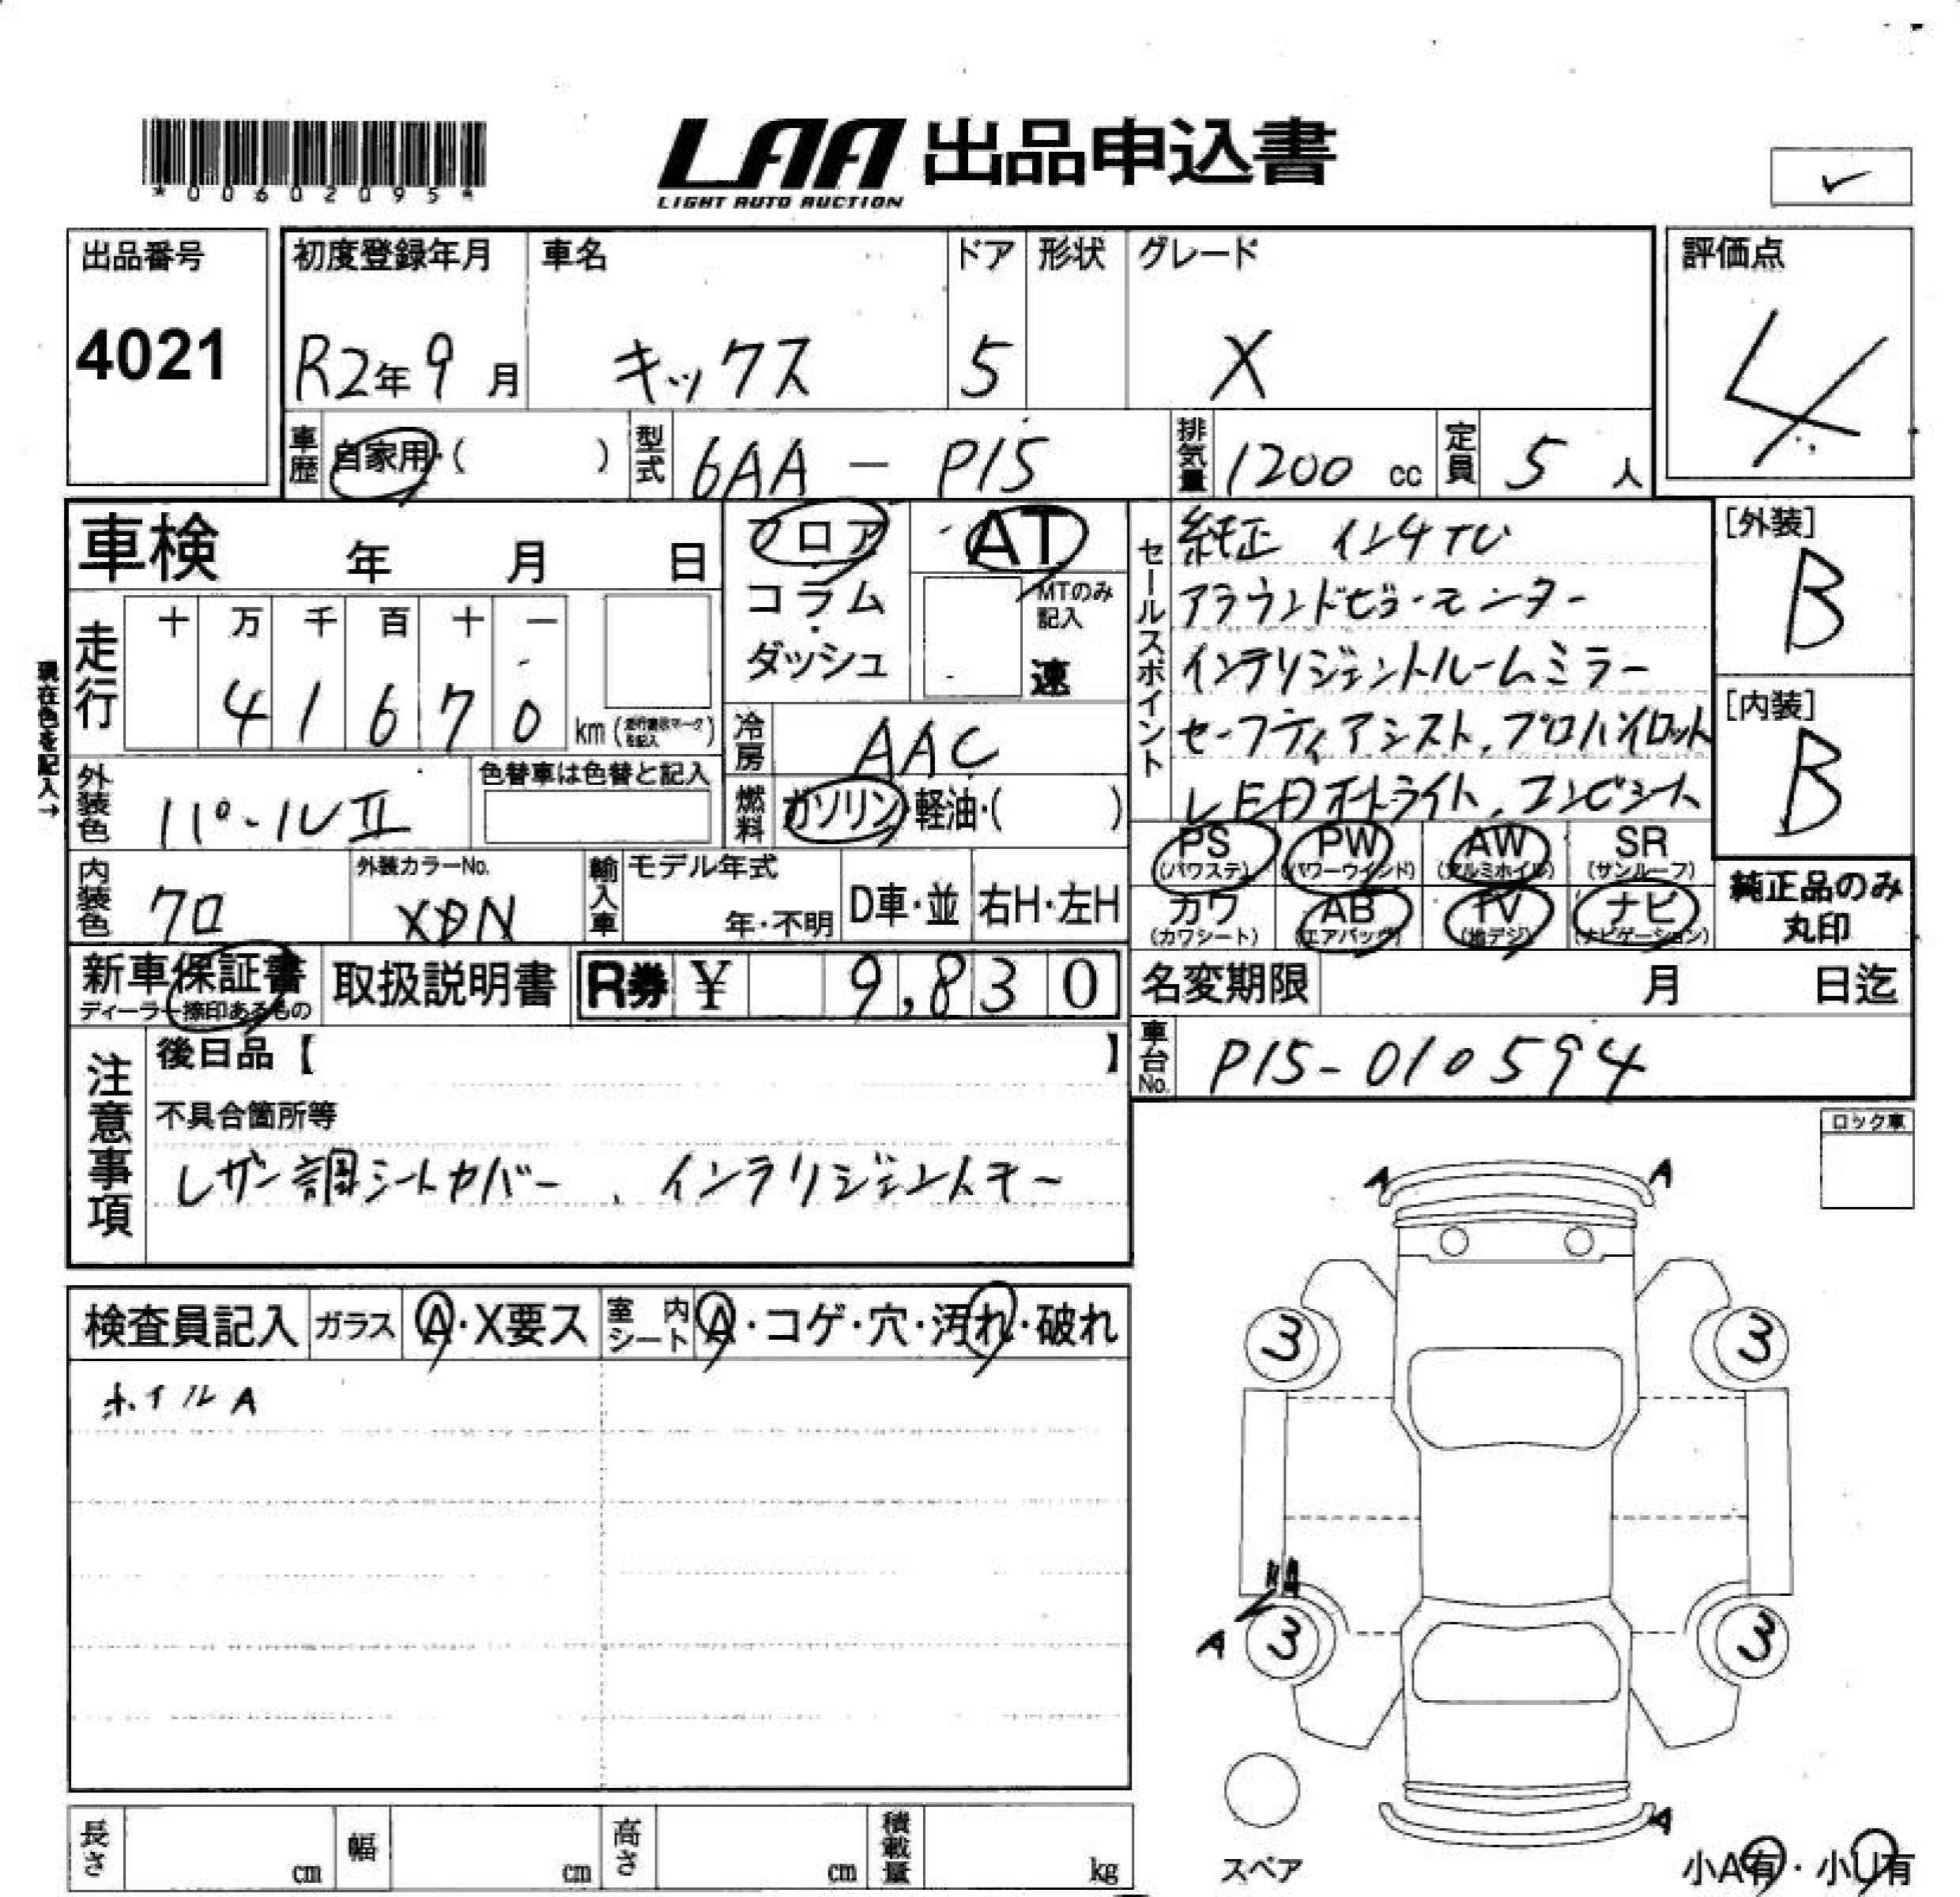 *00602095*
LAA 出品申込書
LIGHT AUTO AUCTION
✓
出品番号
4021
初度登録年月
R2年9月
車名
キックス
ドア
5
形状
グレード
X
評価点
4
車歴 自家用・( )
型式 6AA - P15
排気量 1200 cc
定員 5 人
車検 年 月 日
フロア
コラム・
ダッシュ
AT
MTのみ
記入
速
セールスポイント
純正 インチTV
アラウンドビューモニター
インテリジェントルームミラー
セーフティアシスト, プロパイロット
LEDオートライト, コンビシート
[外装]
B
[内装]
B
現在色を記入→
走行
十 万 千 百 十 一
4 1 6 7 0 km (走行表示マーク を記入)
冷房 AAC
外装色 パールⅡ
色替車は色替と記入
燃料 ガソリン・軽油・( )
PS (パワステ)
PW (パワーウインド)
AW (アルミホイル)
SR (サンルーフ)
内装色 クロ
外装カラーNo.
XDN
輸入車
モデル年式
年・不明
D車・並
右H・左H
カワ (カワシート)
AB (エアバッグ)
TV (地デジ)
ナビ (ナビゲーション)
純正品のみ
丸印
新車保証書
ディーラー捺印あるもの
取扱説明書
R券 ¥ 9,830
名変期限 月 日迄
車台No. P15-010594
注意事項
後日品【 】
不具合箇所等
レザー調シートカバー , インテリジェントキー
ロック車
検査員記入
ガラス A・X要ス
室内シート A・コゲ・穴・汚れ・破れ
ホイルA
A A
3 3
A 3 3
A
スペア
長さ cm
幅 cm
高さ cm
積載量 kg
小A有・小U有